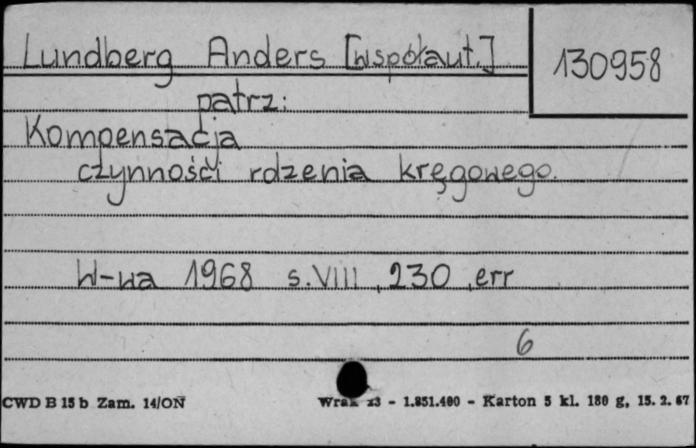 Lundberg Anders [współaut.]
130958
patrz:
Kompensacja
czynności rdzenia kręgowego.
W-wa 1968 s.VIII, 230, err
6
CWD B 15 b Zam. 14/ON
- 1.851.400 - Karton 5 kl. 180 g, 15. 2. 67